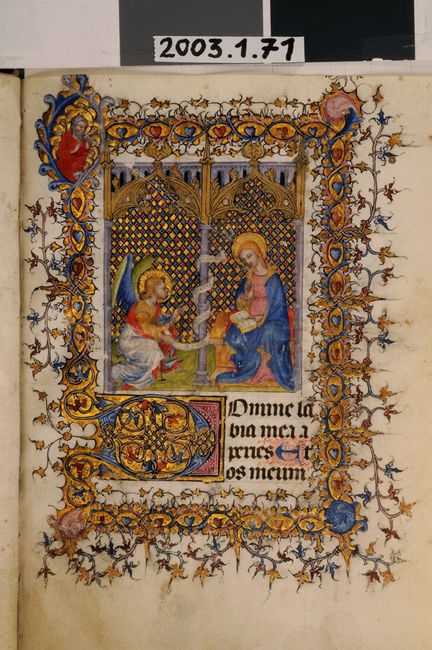 2003.1.71
Domine la
bia mea a
peries Et
os meum